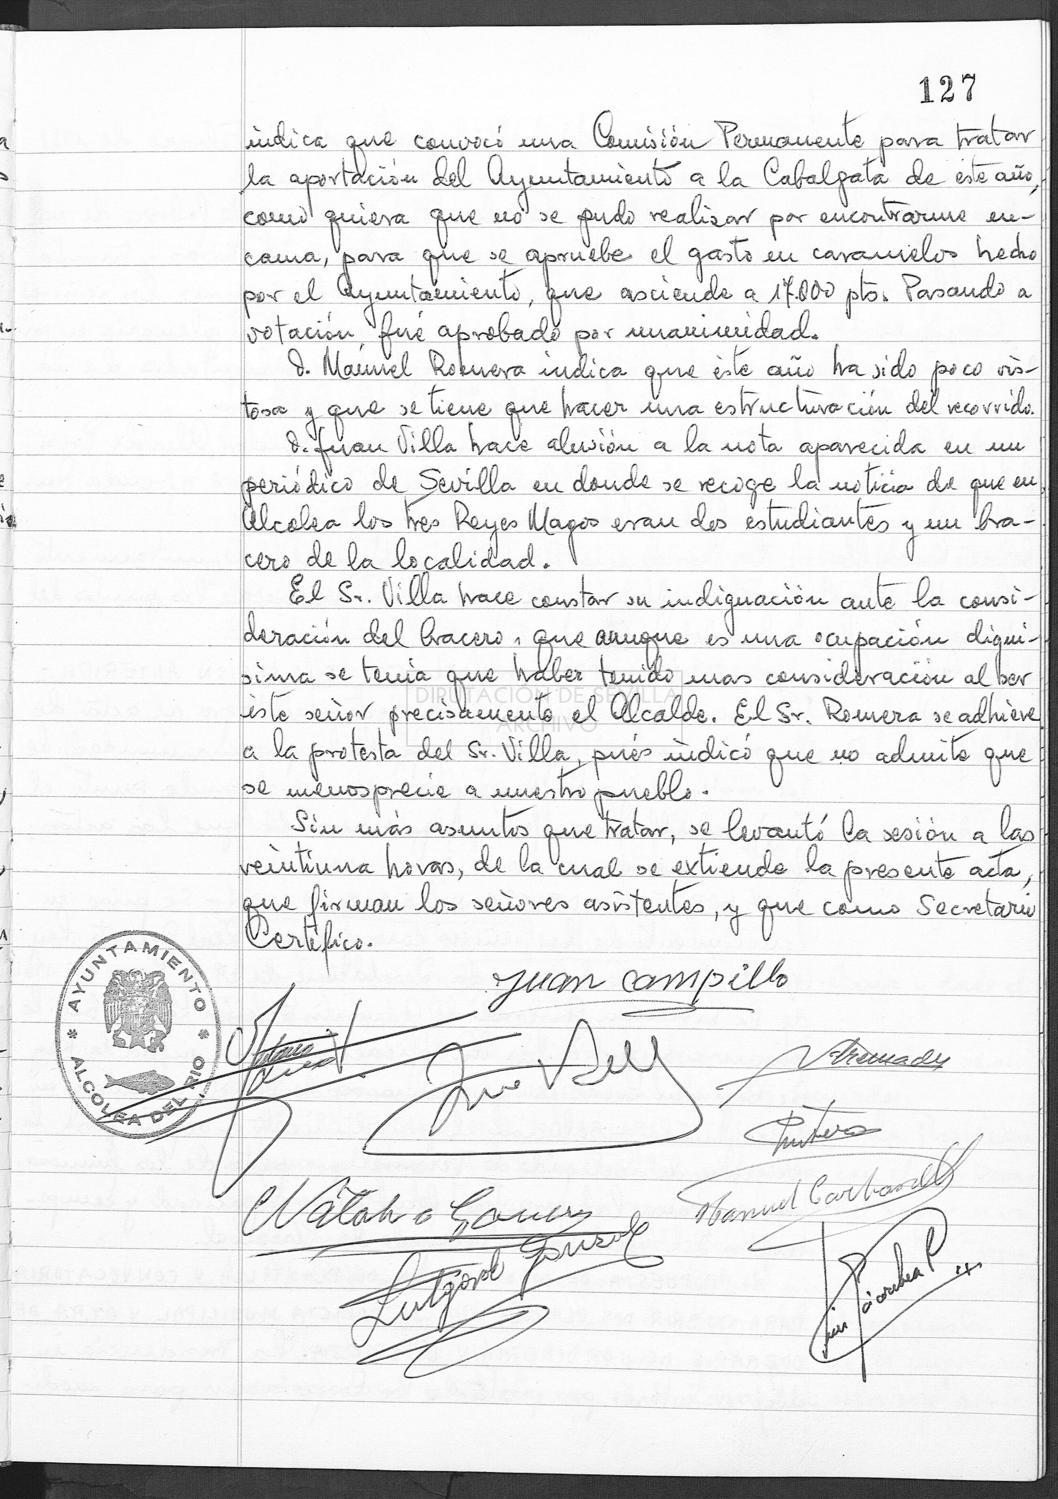 127
indica que convocó una Comisión Permanente para tratar
la aportación del Ayuntamiento a la Cabalgata de éste año,
como quiera que no se pudo realizar por encontrarme en-
cama, para que se apruebe el gasto en caramelos hecho
por el Ayuntamiento, que asciende a 17.000 pts. Pasando a
votación, fué aprobado por unanimidad.
D. Manuel Romera indica que éste año ha sido poco vis-
tosa y que se tiene que hacer una estructuración del recorrido.
D. Juan Villa hace alusión a la nota aparecida en un
periódico de Sevilla en donde se recoge la noticia de que en
Alcolea los tres Reyes Magos eran dos estudiantes y un bra-
cero de la localidad.
El Sr. Villa hace constar su indignación ante la consi-
deración del bracero, que aunque es una ocupación digni-
sima se tenia que haber tenido mas consideración al ser
éste señor precisamente el Alcalde. El Sr. Romera se adhiere
a la protesta del Sr. Villa, pués indicó que no admite que
se menosprecie a nuestro pueblo.
Sin más asuntos que tratar, se levantó la sesión a las
veintiuna horas, de la cual se extiende la presente acta,
que firman los señores asistentes, y que como Secretario
Certifico.
DIPUTACIÓN DE SEVILLA
ARCHIVO
AYUNTAMIENTO
* ALCOLEA DEL RIO *
Juan Campillo
Manuel Carbonell